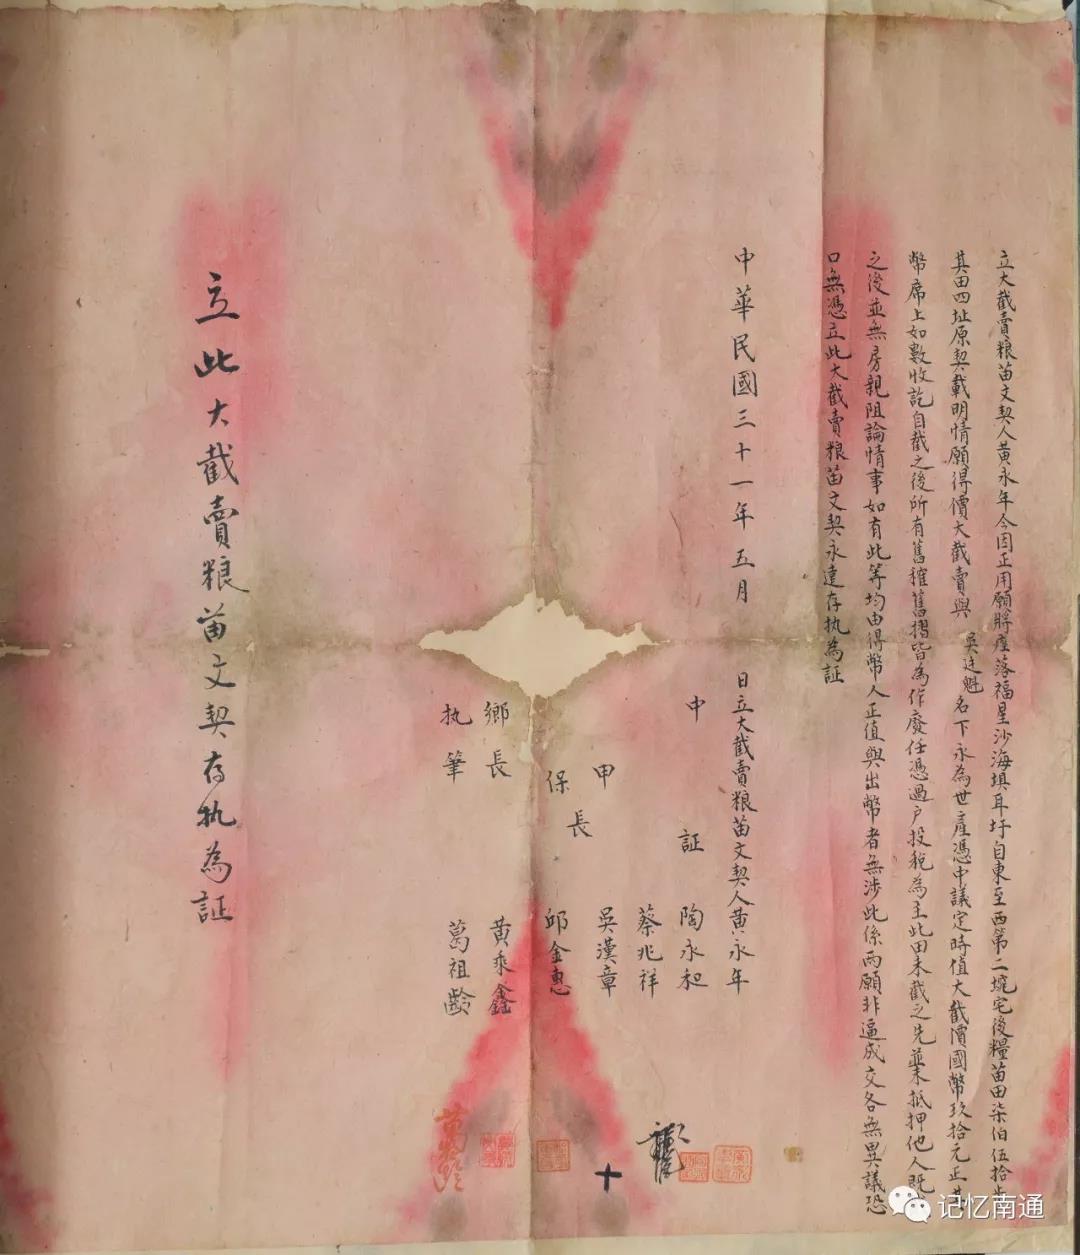 立大截賣粮苗文契人黄永年今因正用願將座落福星沙海填耳圩自東至西第二埦宅後糧苗田柒伯伍拾步
其田四址原契載明情願得價大截賣與吳廷魁名下永為世產憑中議定時值大截價國幣玖拾元正其
幣席上如數收訖自截之後所有舊穜舊摺皆為作廢任憑過户投税為主此田未截之先並未抵押他人既
之後並無房親阻論情事如有此等均由得幣人正值與出幣者無涉此係兩願非逼成交各無異議恐
口無憑立此大截賣粮苗文契永遠存执為証
中華民國三十一年五月 日立大截賣粮苗文契人黄永年
中 証 陶永和
蔡兆祥
甲 長 吳漢章
保 邱金惠
鄉長 黄乘鑫
执筆 葛祖齡
立此大截賣粮苗文契存执為証
记忆南通